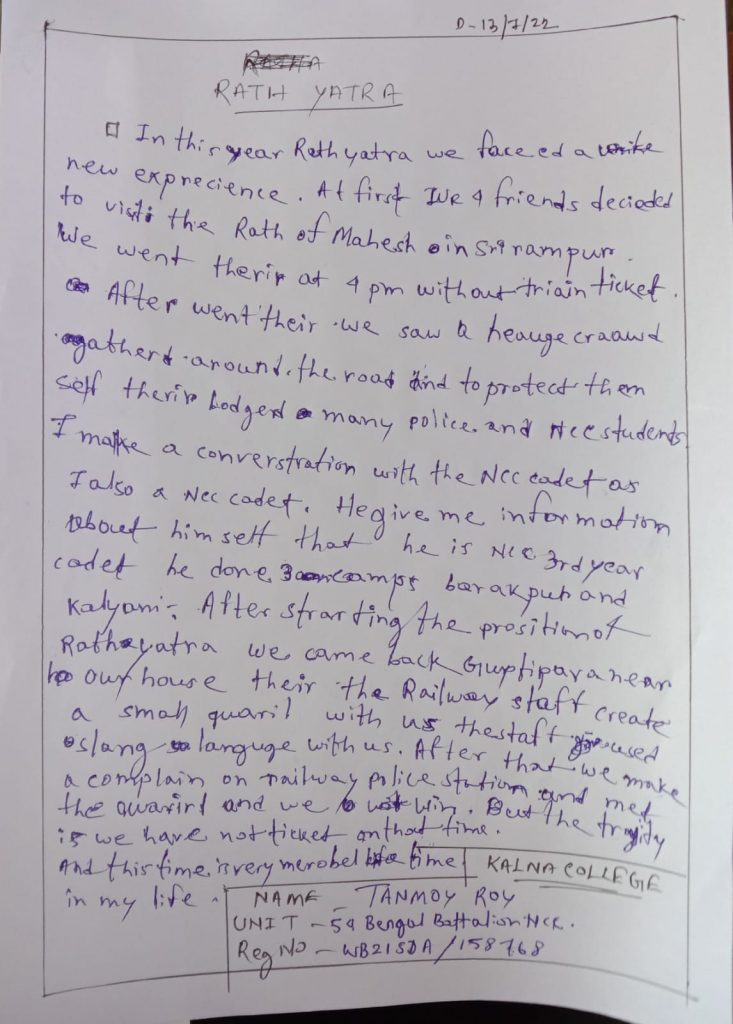 D-13/7/22
RATH YATRA
In this year Rathyatra we faceed a
new exprecience. At first We 4 friends decieded
to visit the Rath of Mahesh in Srirampur.
We went therir at 4 pm without triain ticket.
After went their we saw a heauge craawd
gatherd around the road and to protect them
self therir bodgerd many police and Ncc students
I make a converstration with the Ncc cadet as
I also a Ncc cadet. He give me information
about him self that he is Ncc 3rd year
cadet he done camps barakpur and
Kalyani. After strarting the prosition of
Rathayatra we came back Guptipara near
to our house their the Railway staff create
a small quaril with us the staff used
slang languge with us. After that we make
a complain on railway police station and met
the quarirl and we win. But the tragity
is we have not ticket on that time.
And this time is very merobel time
in my life.
KALNA COLLEGE
NAME - TANMOY ROY
UNIT - 54 Bengal Battalion Ncc.
Reg No - WB21SDA/158768